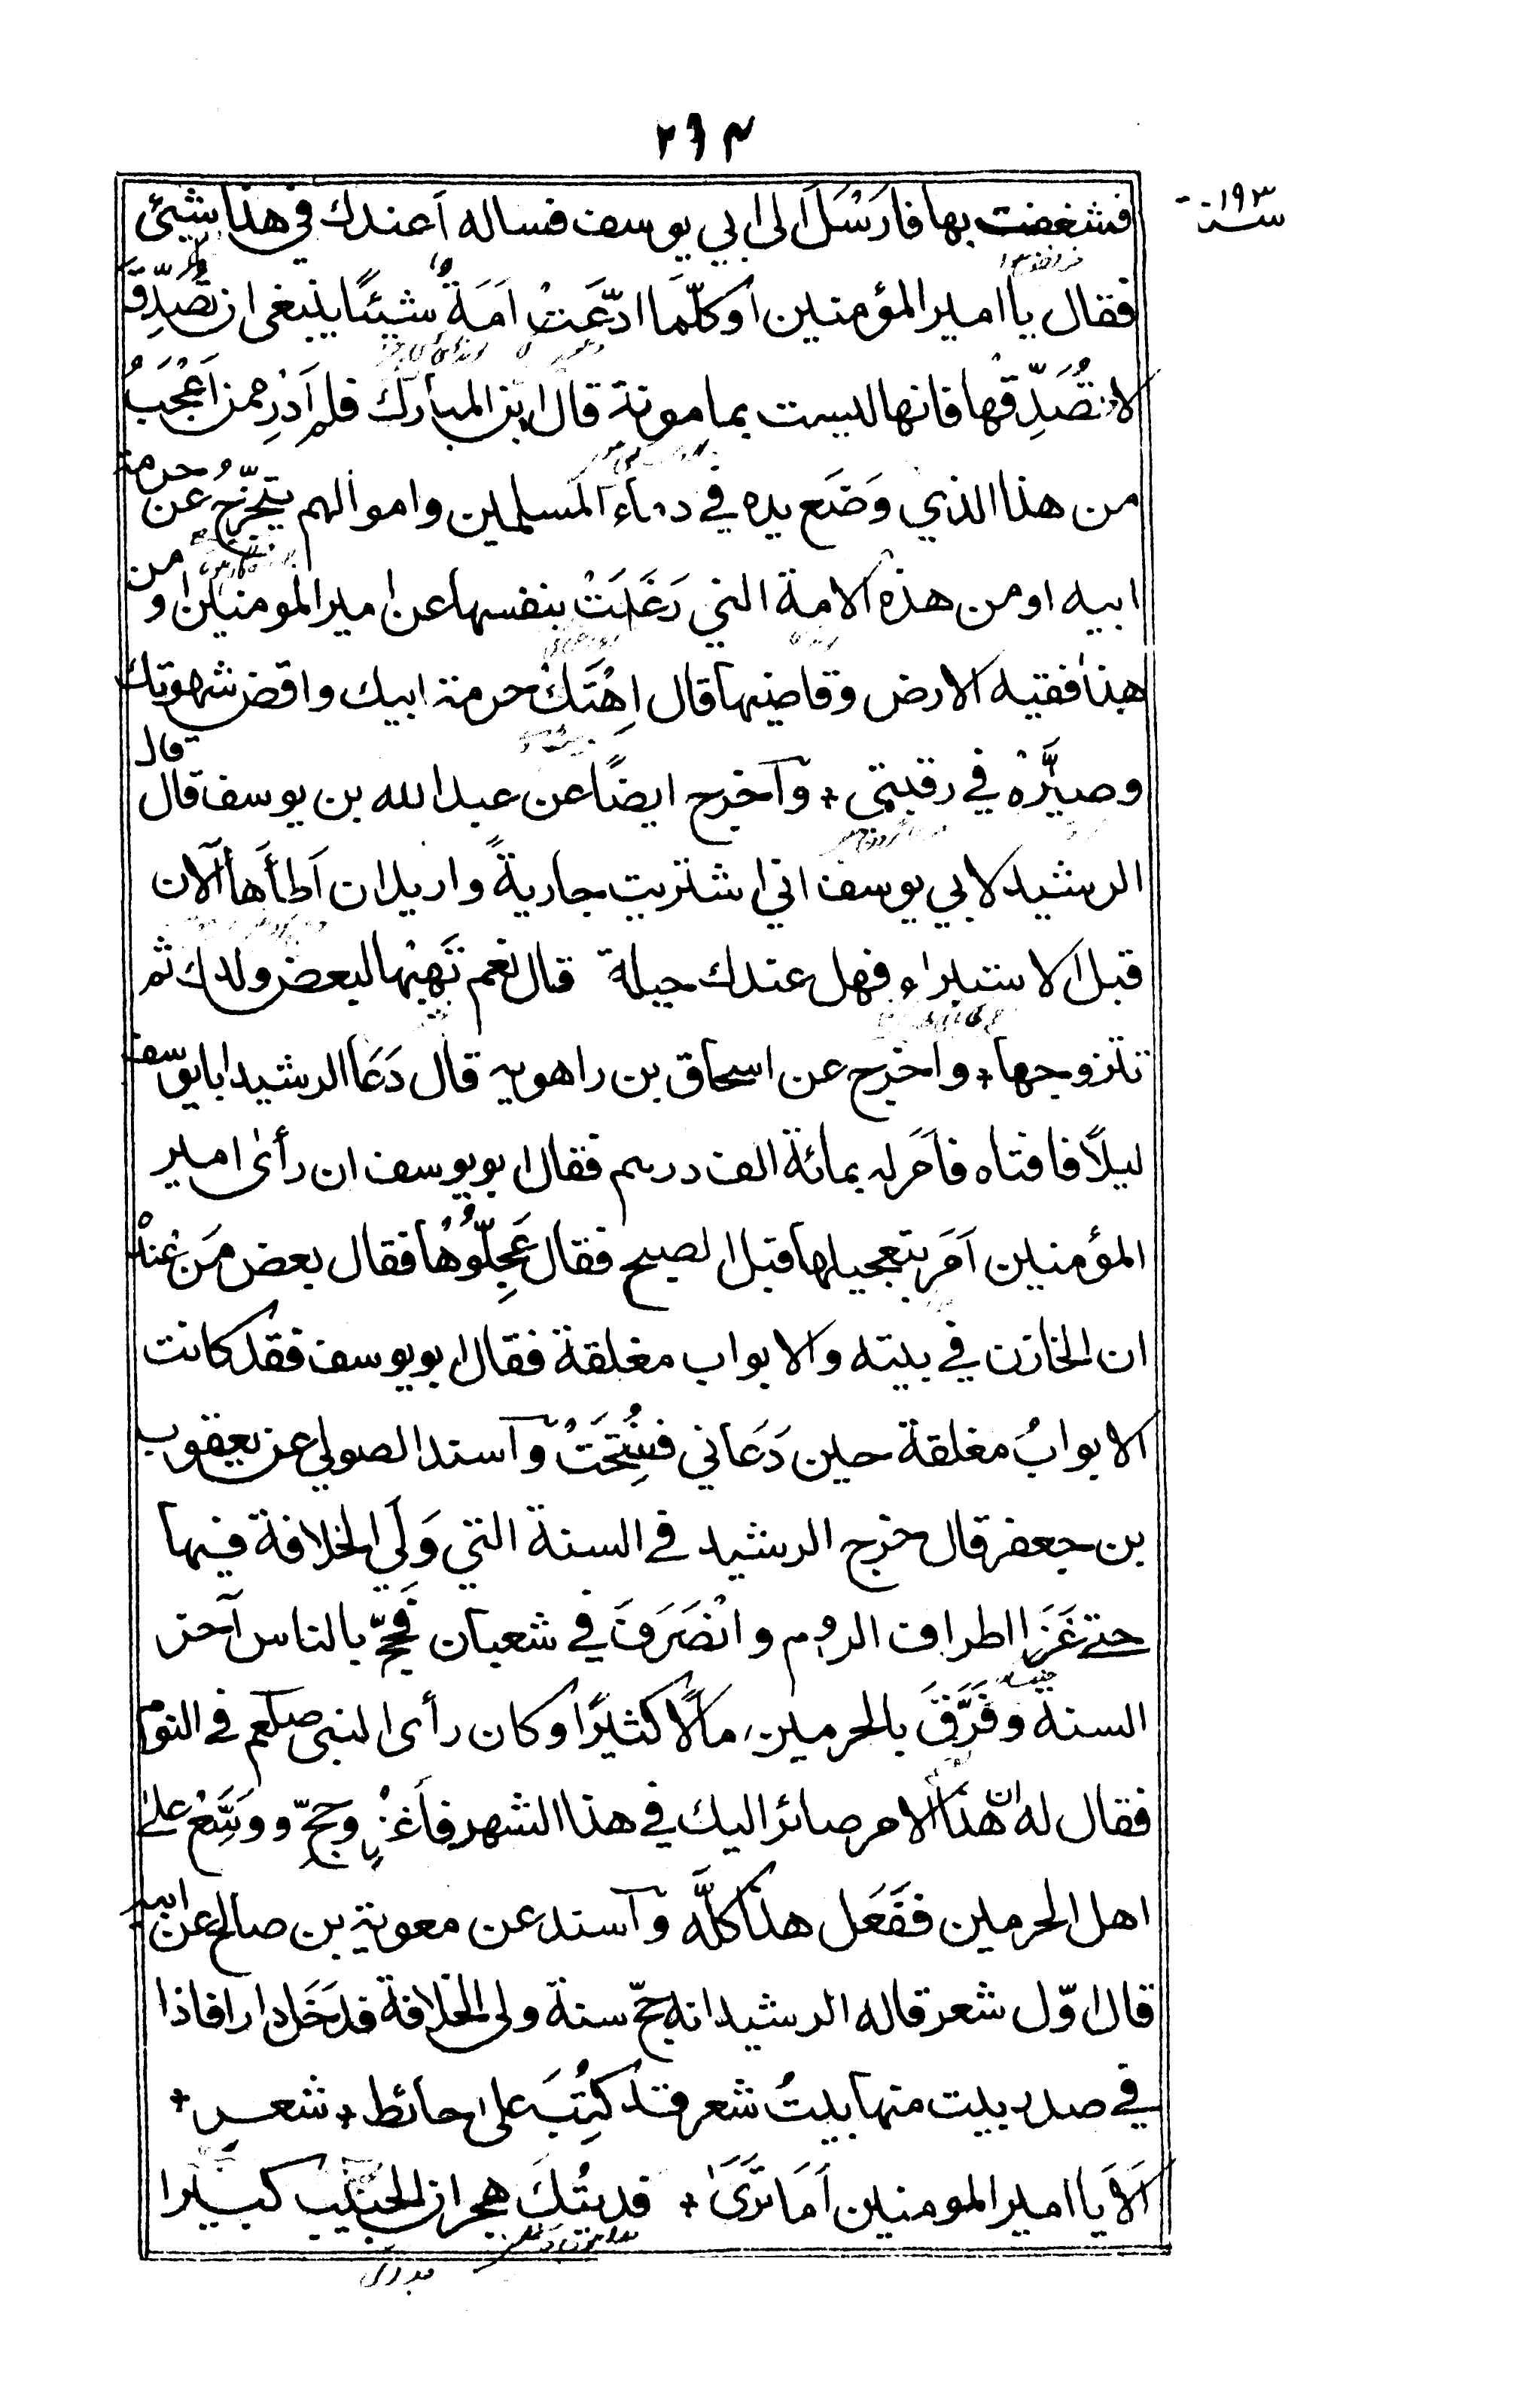 ٢٦٣
سنة ١٩٣
فشغفت بها فارَسْلَ الى ابي يوسف فساله اَعندك في هذا شيئ
فقال يا امير المؤمنين اَوَكلّمَا ادّعَتْ اَمَةٌ شيئًا ينبغى ان تُصَدَّقَ
لا تُصَدِّقْها فانها ليست بمامونة قال ابن المبارك فلم اَدْرِ ممن اَعْجَبُ
من هذا الذي وَضَع يده في دماء المسلمين واموالهم يتحَرّجُ عن حرمة
ابيه او من هذه الامة التي رَغَبَتْ بنفسها عن امير المومنين او من
هذا فقيه الارض وقاضيها قال اِهْتَكْ حرمة ابيك واقض شهوتك
وصَيِّرْه في رقبتي * وآخرج ايضًا عن عبد الله بن يوسف قال قال
الرشيد لابي يوسف اني اشتريت جاريةً واريد ان اَطأَها الآن
قبل الاستبراء فهل عندك حيلة قال نعم تَهَبْها لبعض ولدك ثم
تتزوجها * واخرج عن اسحاق بن راهويه قال دَعَا الرشيد ابا يوسف
ليلًا فافتاه فاَمَر له بمائة الف درهم فقال ابو يوسف ان رأى امير
المؤمنين اَمَر بتعجيلها قبل الصبح فقال عَجِلّوُهْا فقال بعض مَن عْنده
ان الخازن في بيته والابواب مغلقة فقال ابو يوسف فقد كانت
الابوابُ مغلقة حين دَعَاني ففُتِحَتْ وآسند الصولي عن يعقوب
بن جعفر قال خرج الرشيد في السنة التي وَلَي الخلافة فيها
حتے غَزَا اطراف الروم وانْصَرَفَ في شعبان فَحَجّ بالناس آخر
السنة وفَرَّقَ بالحرمين مالًا كثيرًا وكان رأى النبي صلعم في النوم
فقال له ان هذا الامر صائر اليك في هذا الشهر فاَغْزُ وحُجّ ووَسِّعْ علے
اهل الحرمين ففَعَل هذا كلَّه وآسند عن معوية بن صالح عن ابيه
قال اوّل شعر قاله الرشيد انه حَجّ سنة ولى الخلافة فدَخَل دارا فاذا
في صدر بيت منها بيتُ شعر قد كُتِبَ على حائط * شعر *
اَلَا يا امير المومنين اَمَا تَرَىٰ * فديتُكَ هجران الحبيب كبيرا